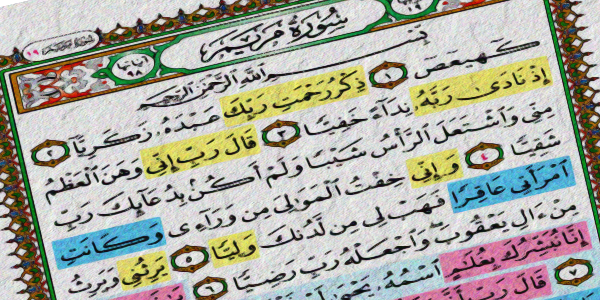 سورة مريم
سورة مريم ١٩
آياتها ٩٨
بسم الله الرحمن الرحيم
كهيعص ١ ذكر رحمت ربك عبده زكريا ٢
إذ نادى ربه نداء خفيا ٣ قال رب إني وهن العظم
مني واشتعل الرأس شيبا ولم أكن بدعائك رب
شقيا ٤ وإني خفت الموالي من وراءي وكانت
امرأتي عاقرا فهب لي من لدنك وليا ٥ يرثني ويرث
من ءال يعقوب واجعله رب رضيا ٦
إنا نبشرك بغلام اسمه يحيى
٧ قال رب أنى